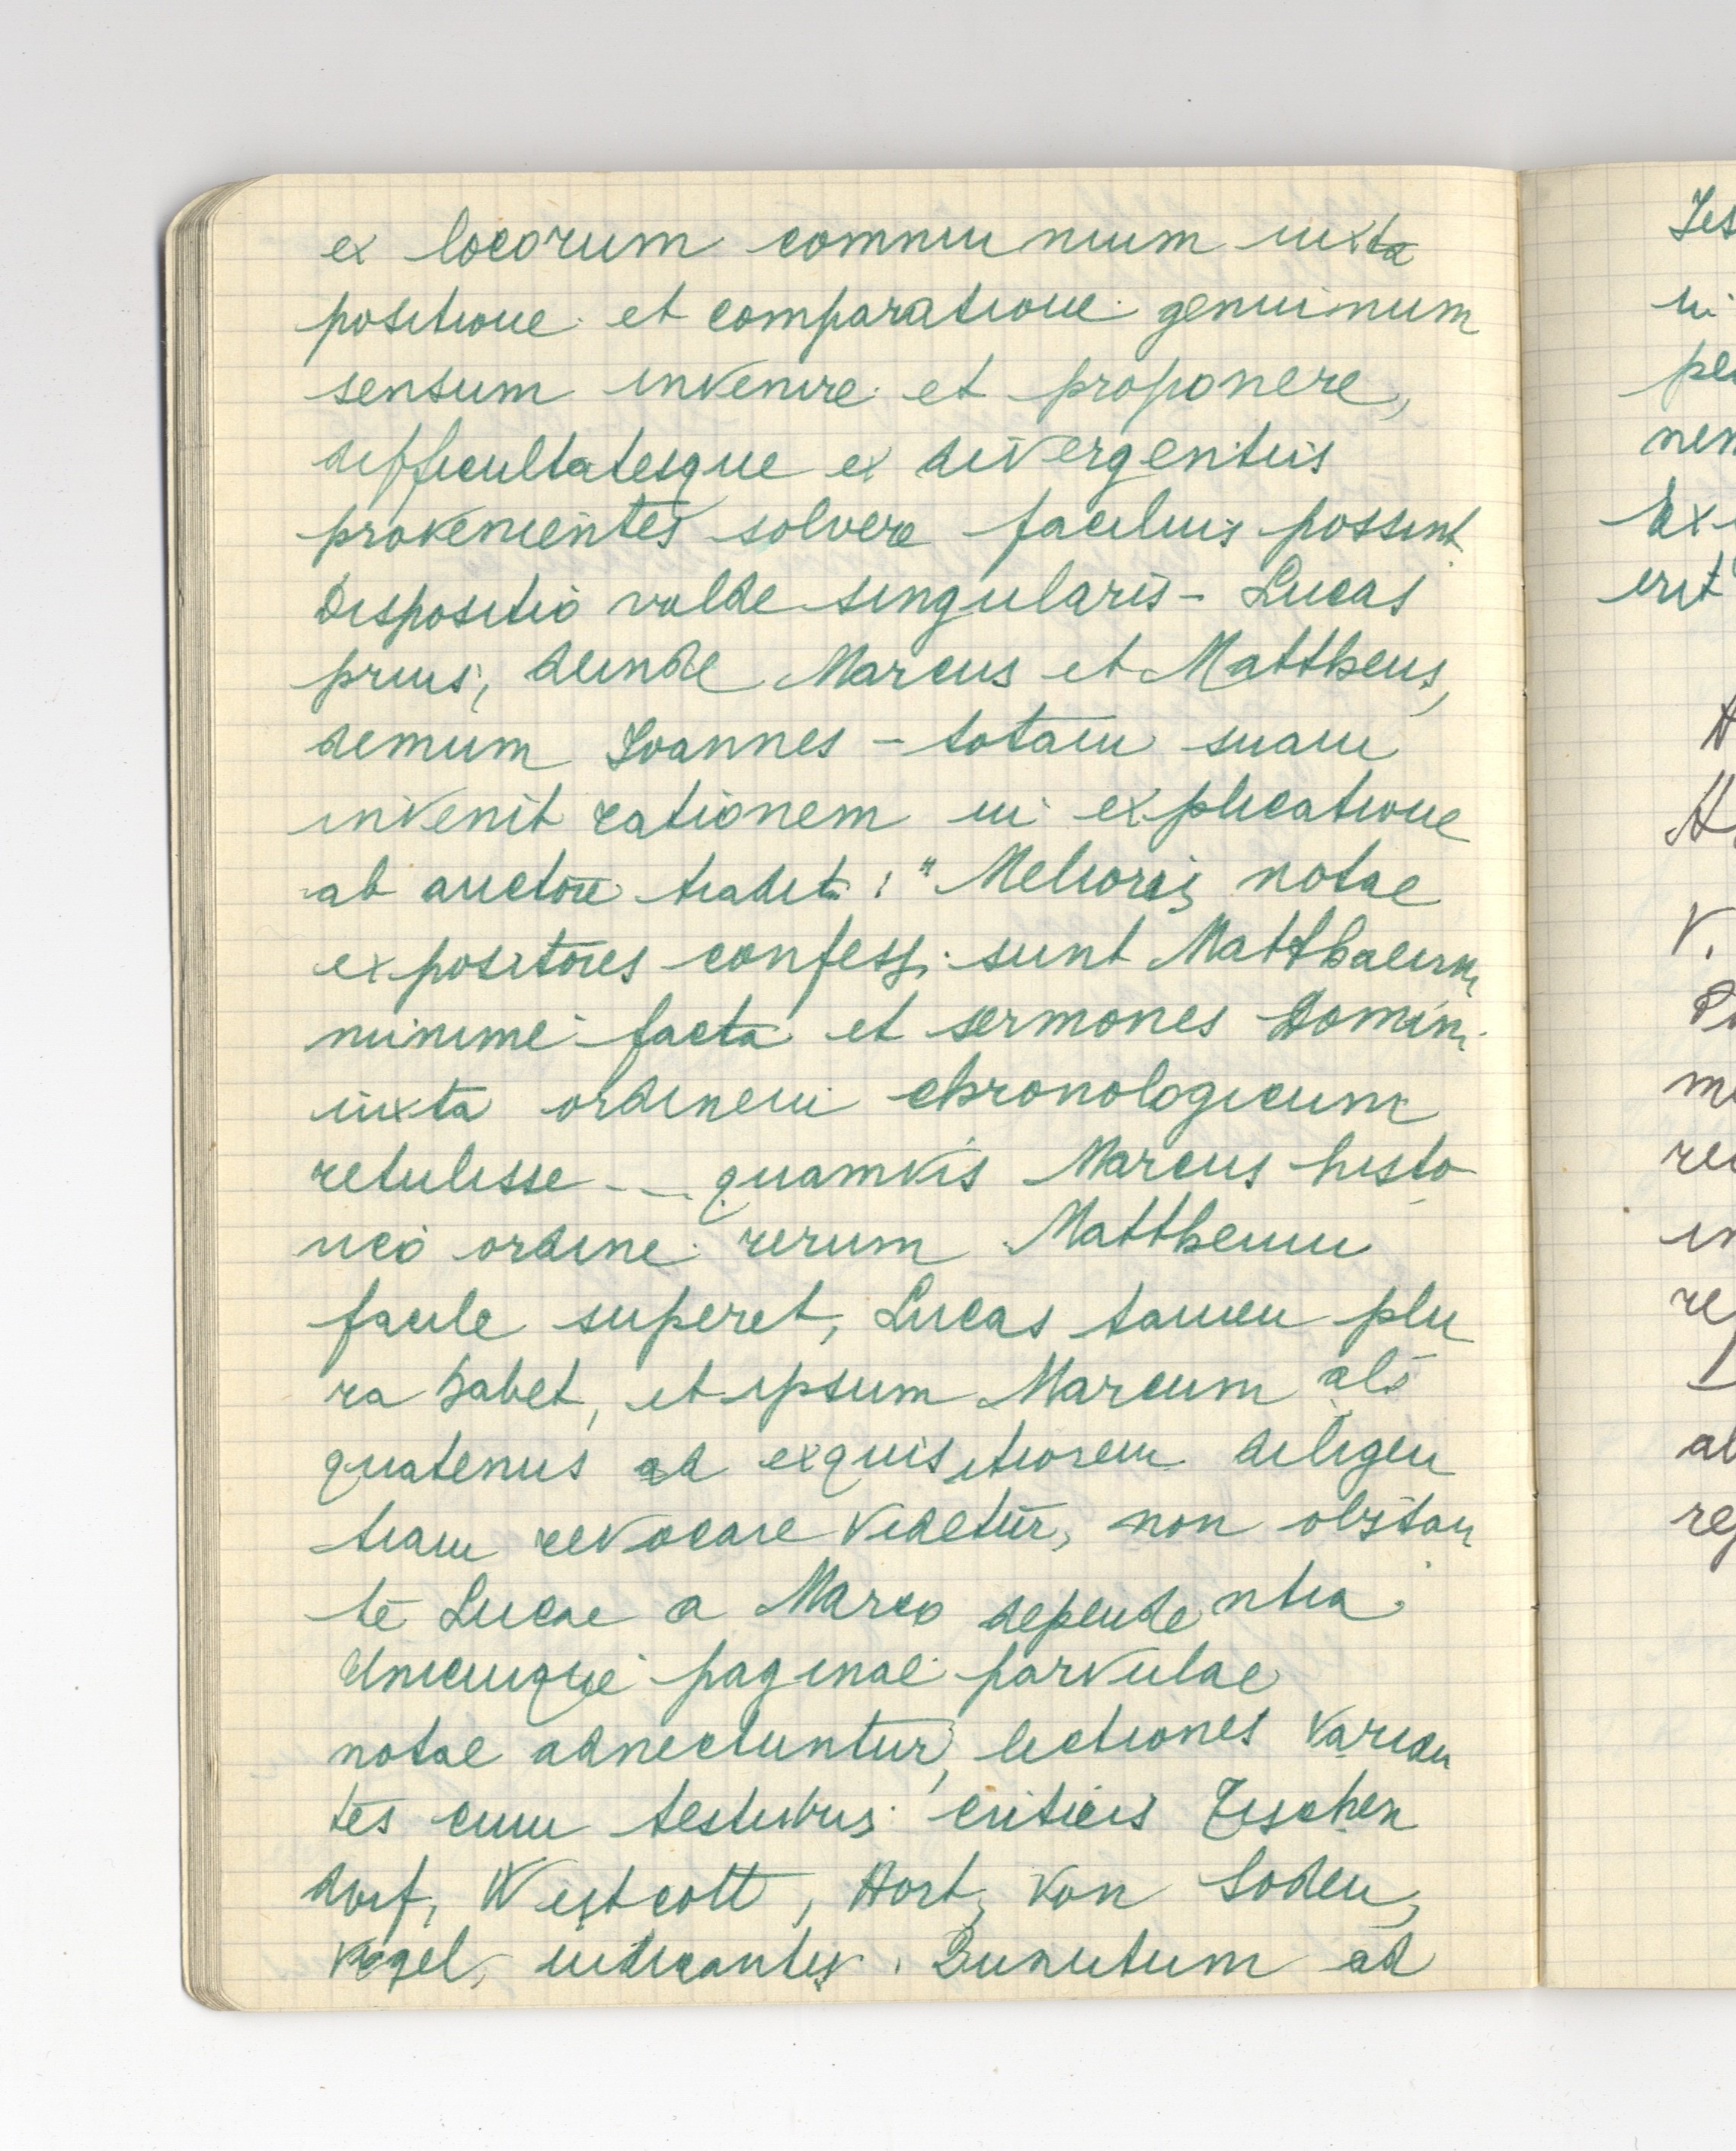 ex locorum communium iuxta
positione et comparatione genuinum
sensum invenire et proponere,
difficultatesque ex divergentiis
provenientes solvere facilius possint.
Dispositio valde singularis - Lucas
prius, deinde Marcus et Mattheus,
demum Ioannes - totam suam
invenit rationem in explicatione
ab auctore tradit: : "Melioris notae
expositores confessi sunt Matthaeum
minime facta et sermones Domini
iuxta ordinem chronologicum
retulisse ... quamvis Marcus histo
rico ordine rerum Mattheum
facile superet, Lucas tamen plu
ra habet, et ipsum Marcum ali
quatenus ad exquisitiorem diligen
tiam revocare videtur, non obstan
te Lucae a Marco dependentia.
Unicuique paginae parvulae
notae adnectuntur, lectiones varian
tes cum testibus criticis Tischen
dorf, Westcott, Hort, von Soden,
Vogel, indicantes. ad
Ies
in
pe
nem
Ex
erit
A
H
V.
P
m
re
in
re
al
reg